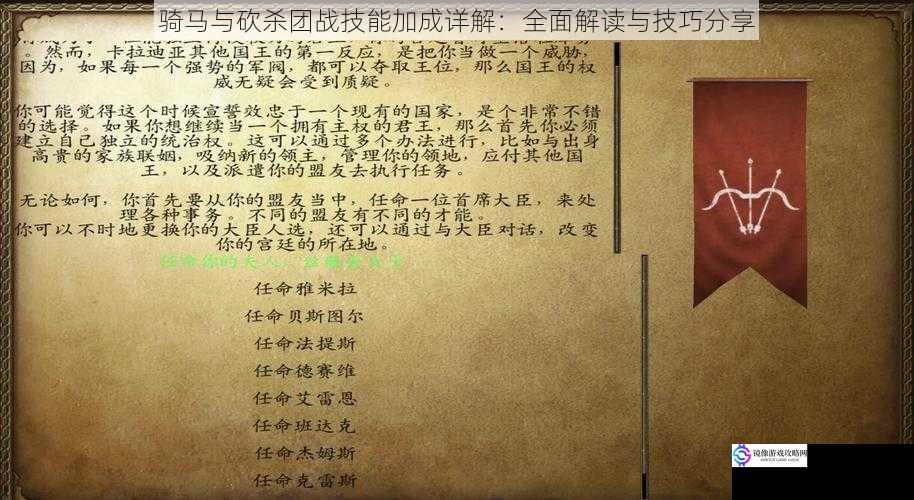 骑马与砍杀团战技能加成详解：全面解读与技巧分享
。然而，卡拉迪亚其他国王的第一反应，是把你当做一个威胁，
因为，如果每一个强势的军阀，都可以夺取王位，那么国王的权
威无疑会受到质疑。
你可能觉得这个时候宣誓效忠于一个现有的国家，是个非常不错
的选择。如果你想继续当一个拥有主权的君王，那么首先你必须
建立自己独立的统治权。这可以通过多个办法进行，比如与出身
高贵的家族联姻，吸纳新的领主，管理你的领地，应付其他国
王，以及派遣你的盟友去执行任务。
无论如何，你首先要从你的盟友当中，任命一位首席大臣，来处
理各种事务。不同的盟友有不同的才能。
你可以不时地更换你的大臣人选，还可以通过与大臣对话，改变
你的宫廷的所在地。
任命你的夫人，
任命雅米拉
任命贝斯图尔
任命法提斯
任命德赛维
任命艾雷恩
任命班达克
任命杰姆斯
任命克雷斯
镜像游戏攻略网